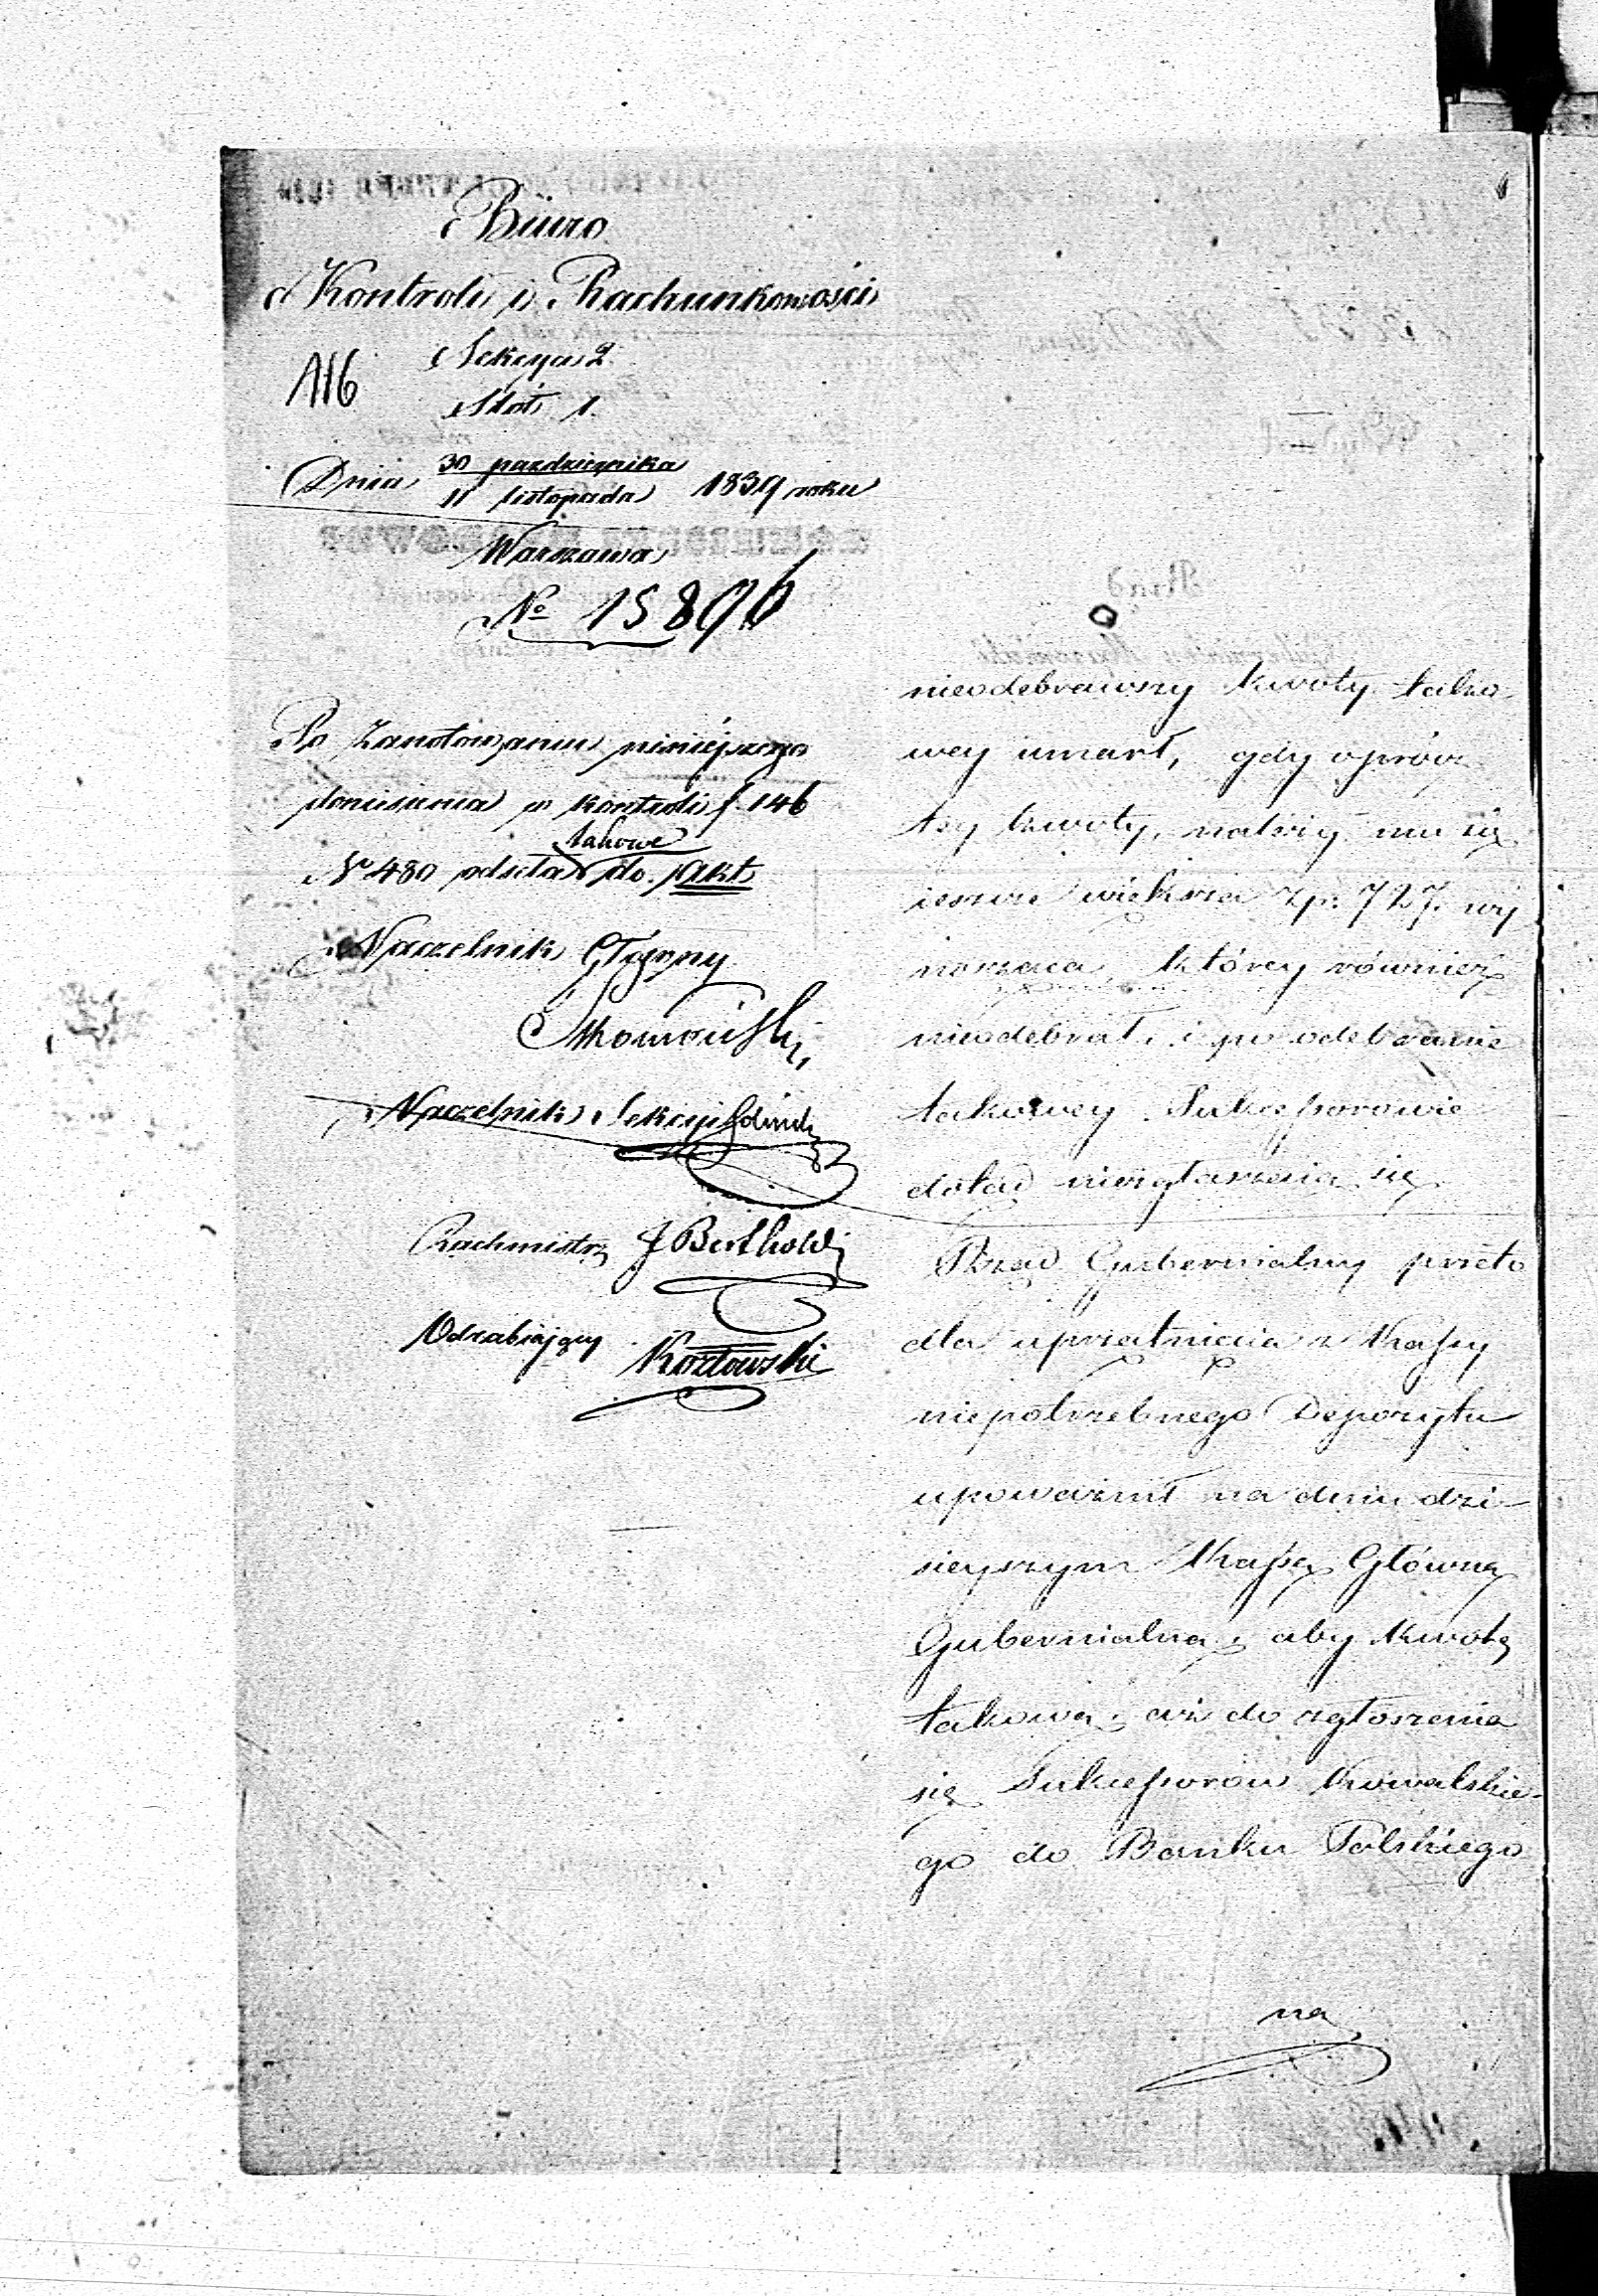 Büuro
Kontroli i Rachunkowości
Sekcya 2.
116
Stół 1.
Dnia 30 pazdziernika / 11 listopada 1839 roku
Warszawa
No 15896
Po Zanotowaniu niniéjszego
doniesienia w kontroli f. 146
takowe
Nr 480 odseła do akt
Naczelnik Główny
Naczelnik Sekcyi
Rachmistrz J Berthold
Odrabiający Kozłowski
nieodebrawszy kwoty tako-
wey umarł, gdy oprócz
tey kwoty, należy mu się
ieszcze większa zp. 727. wy
nosząca, którey również
nieodebrał, i po odebranie
takowey Sukcessorowie
dotąd niezgłaszaią się
Rząd Gubernialny przeto
dla uprzątnienia z Kassy
niepotrzebnego Depozytu
upoważnił na dniu dzi-
sieyszym Kassę Główną
Gubernialną, aby kwotę
takową, aż do zgłoszenia
się Sukcessorów Kowalskie-
go do Banku Polskiego
na